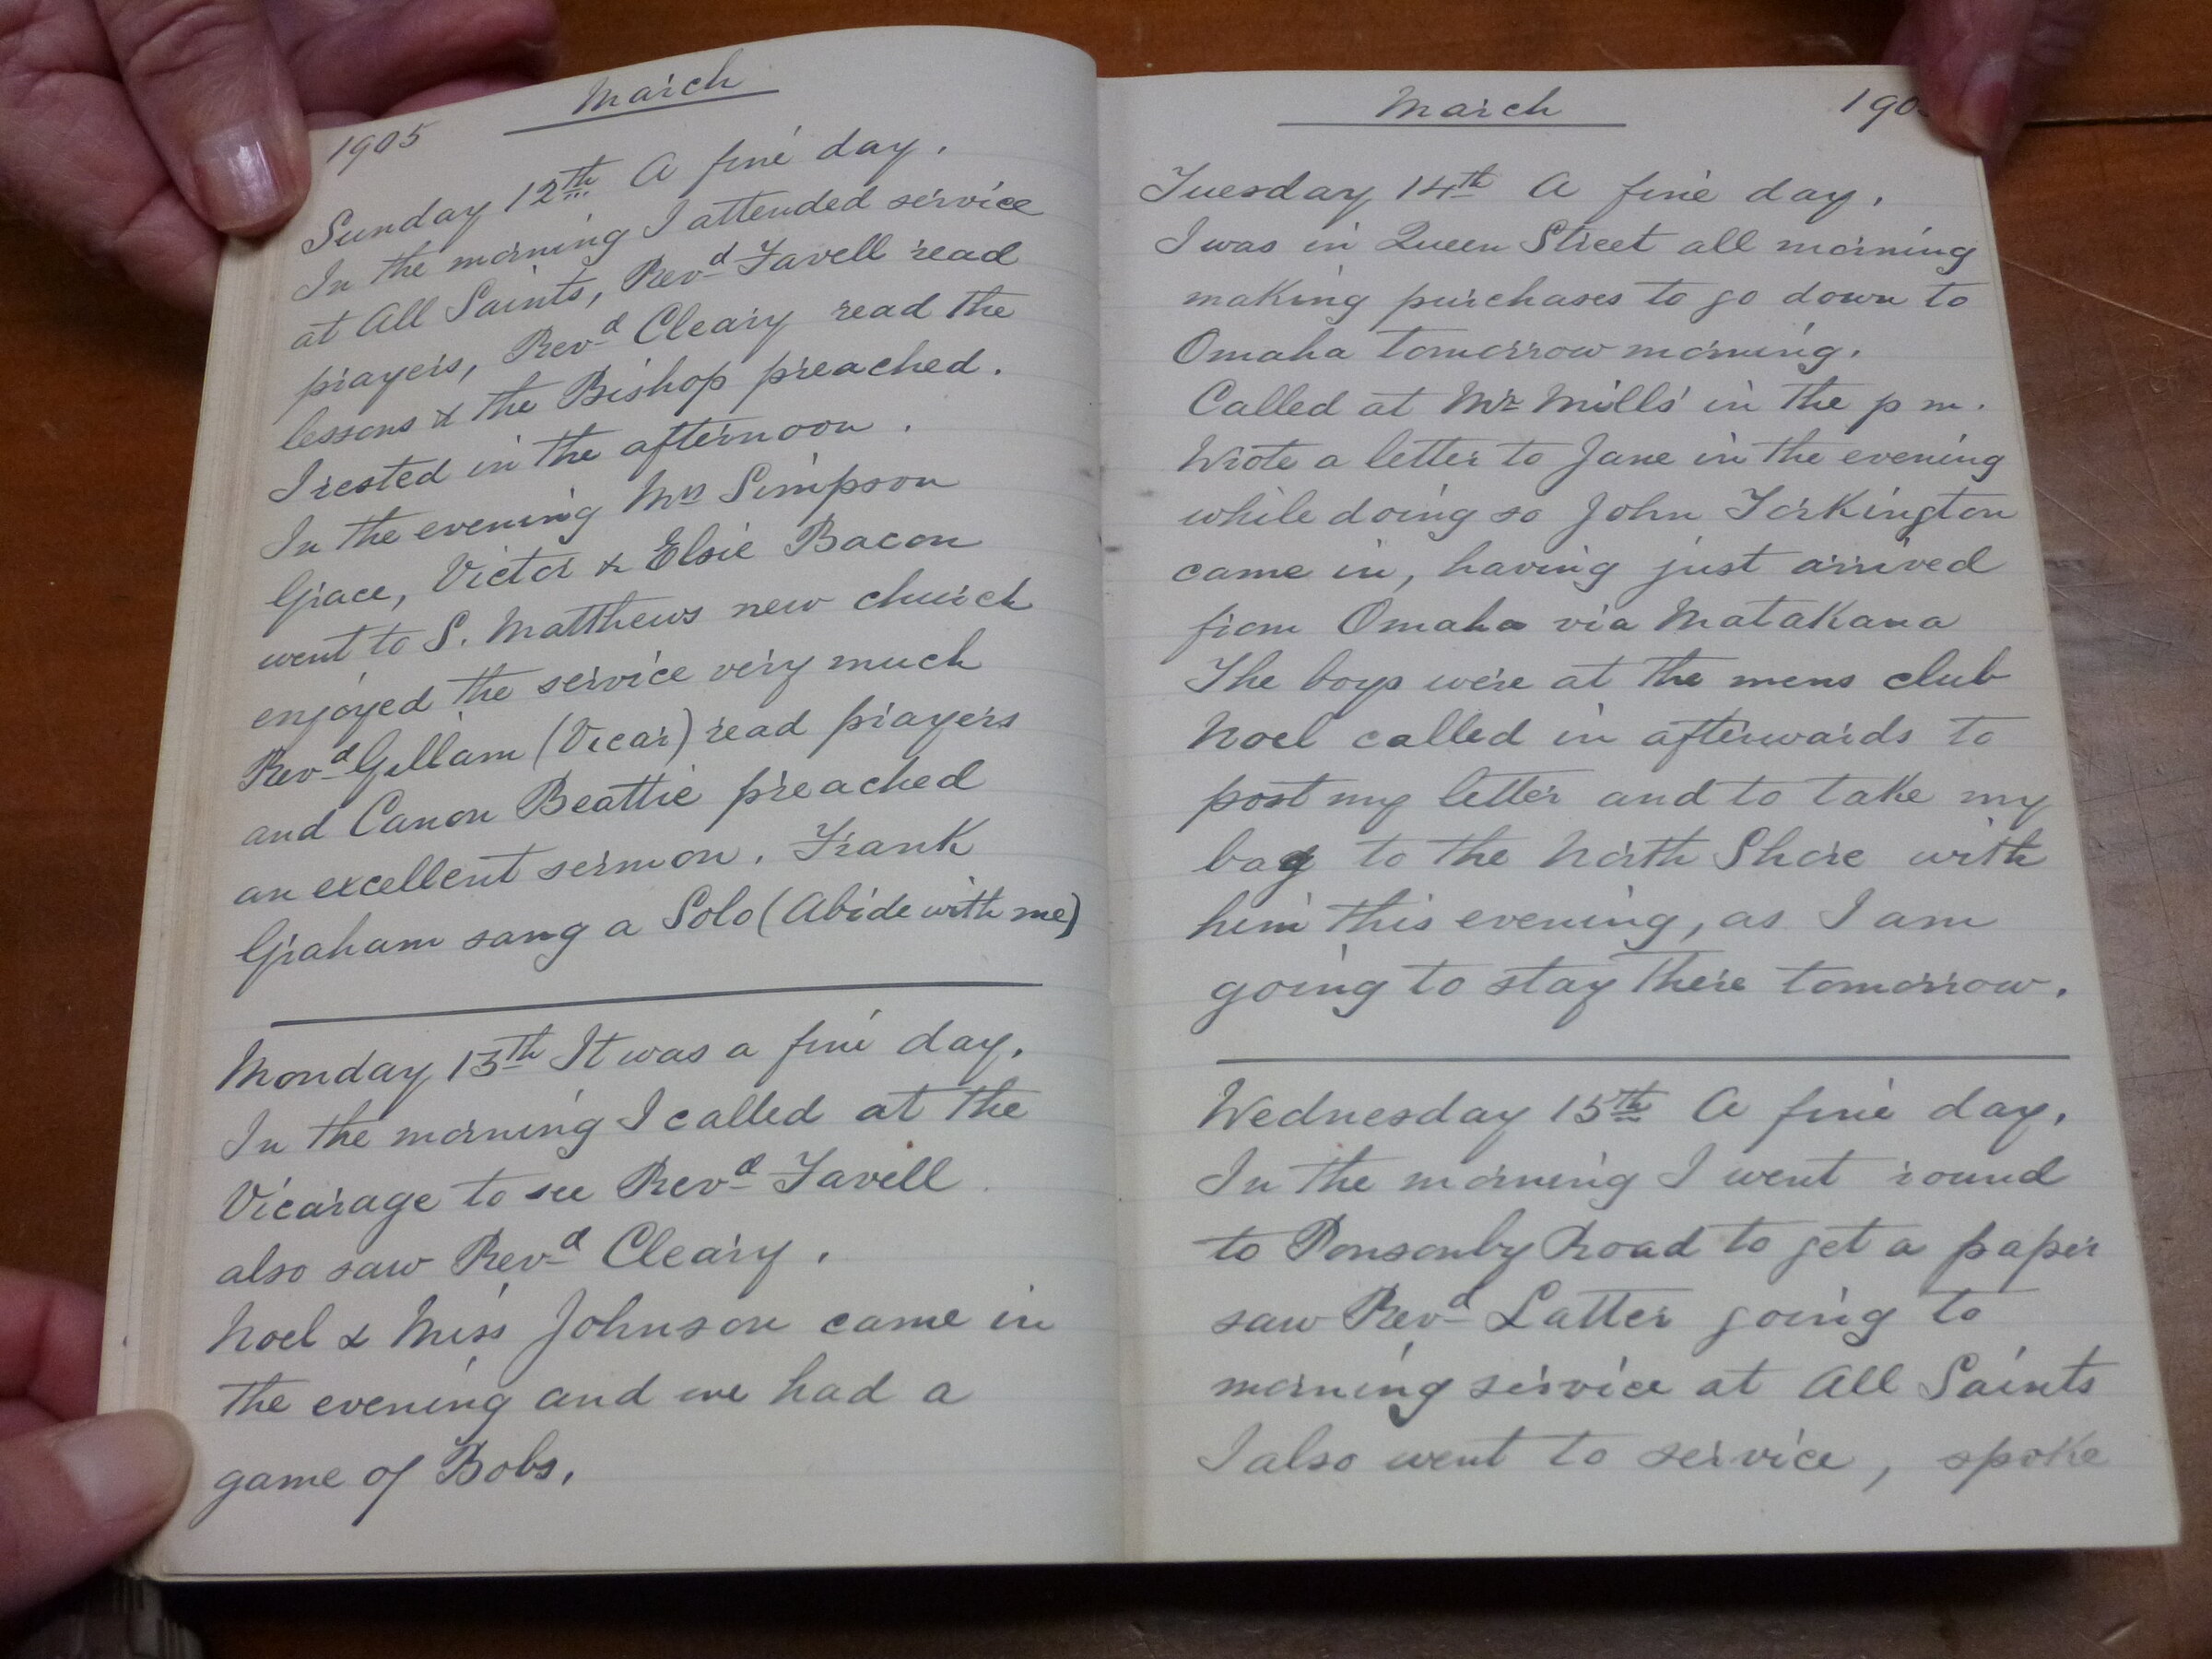 March
1905
Sunday 12th A fine day.
In the morning I attended service
at All Saints, Revd Favell read
prayers, Revd Cleary read the
lessons & the Bishop preached.
I rested in the afternoon.
In the evening Mrs Simpson
Grace, Victor & Elsie Bacon
went to S. Matthews new church
enjoyed the service very much
Revd Gillam (Vicar) read prayers
and Canon Beattie preached
an excellent sermon. Frank
Graham sang a Solo (Abide with me)
Monday 13th It was a fine day.
In the morning I called at the
Vicarage to see Revd Favell
also saw Revd Cleary.
Noel & Miss Johnson came in
the evening and we had a
game of Bobs.
March
190
Tuesday 14th A fine day.
I was in Queen Street all morning
making purchases to go down to
Omaha tomorrow morning.
Called at Mr Mills' in the p m.
Wrote a letter to Jane in the evening
while doing so John Torkington
came in, having just arrived
from Omaha via Matakana
The boys were at the mens club
Noel called in afterwards to
post my letter and to take my
bag to the North Shore with
him this evening, as I am
going to stay there tomorrow.
Wednesday 15th A fine day.
In the morning I went round
to Ponsonby Road to get a paper
saw Revd Latter going to
morning service at All Saints
I also went to service, spoke